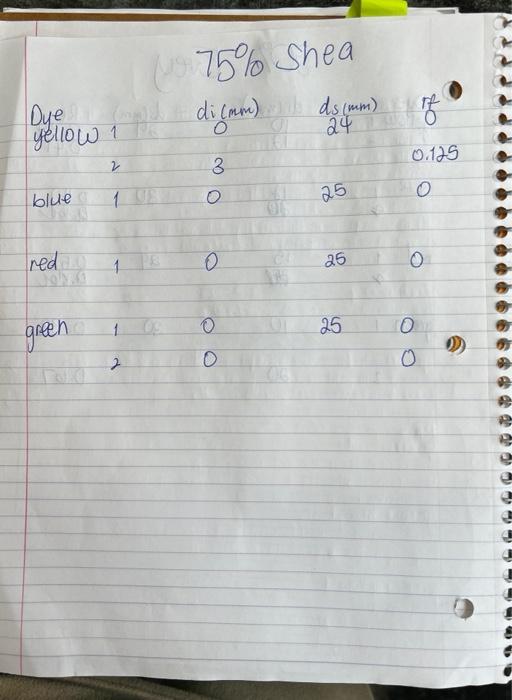 75% Shea
Dye di (mm) ds (mm) rf
yellow 1 0 24 0
2 3 0.125
blue 1 0 25 0
red 1 0 25 0
green 1 0 25 0
2 0 0